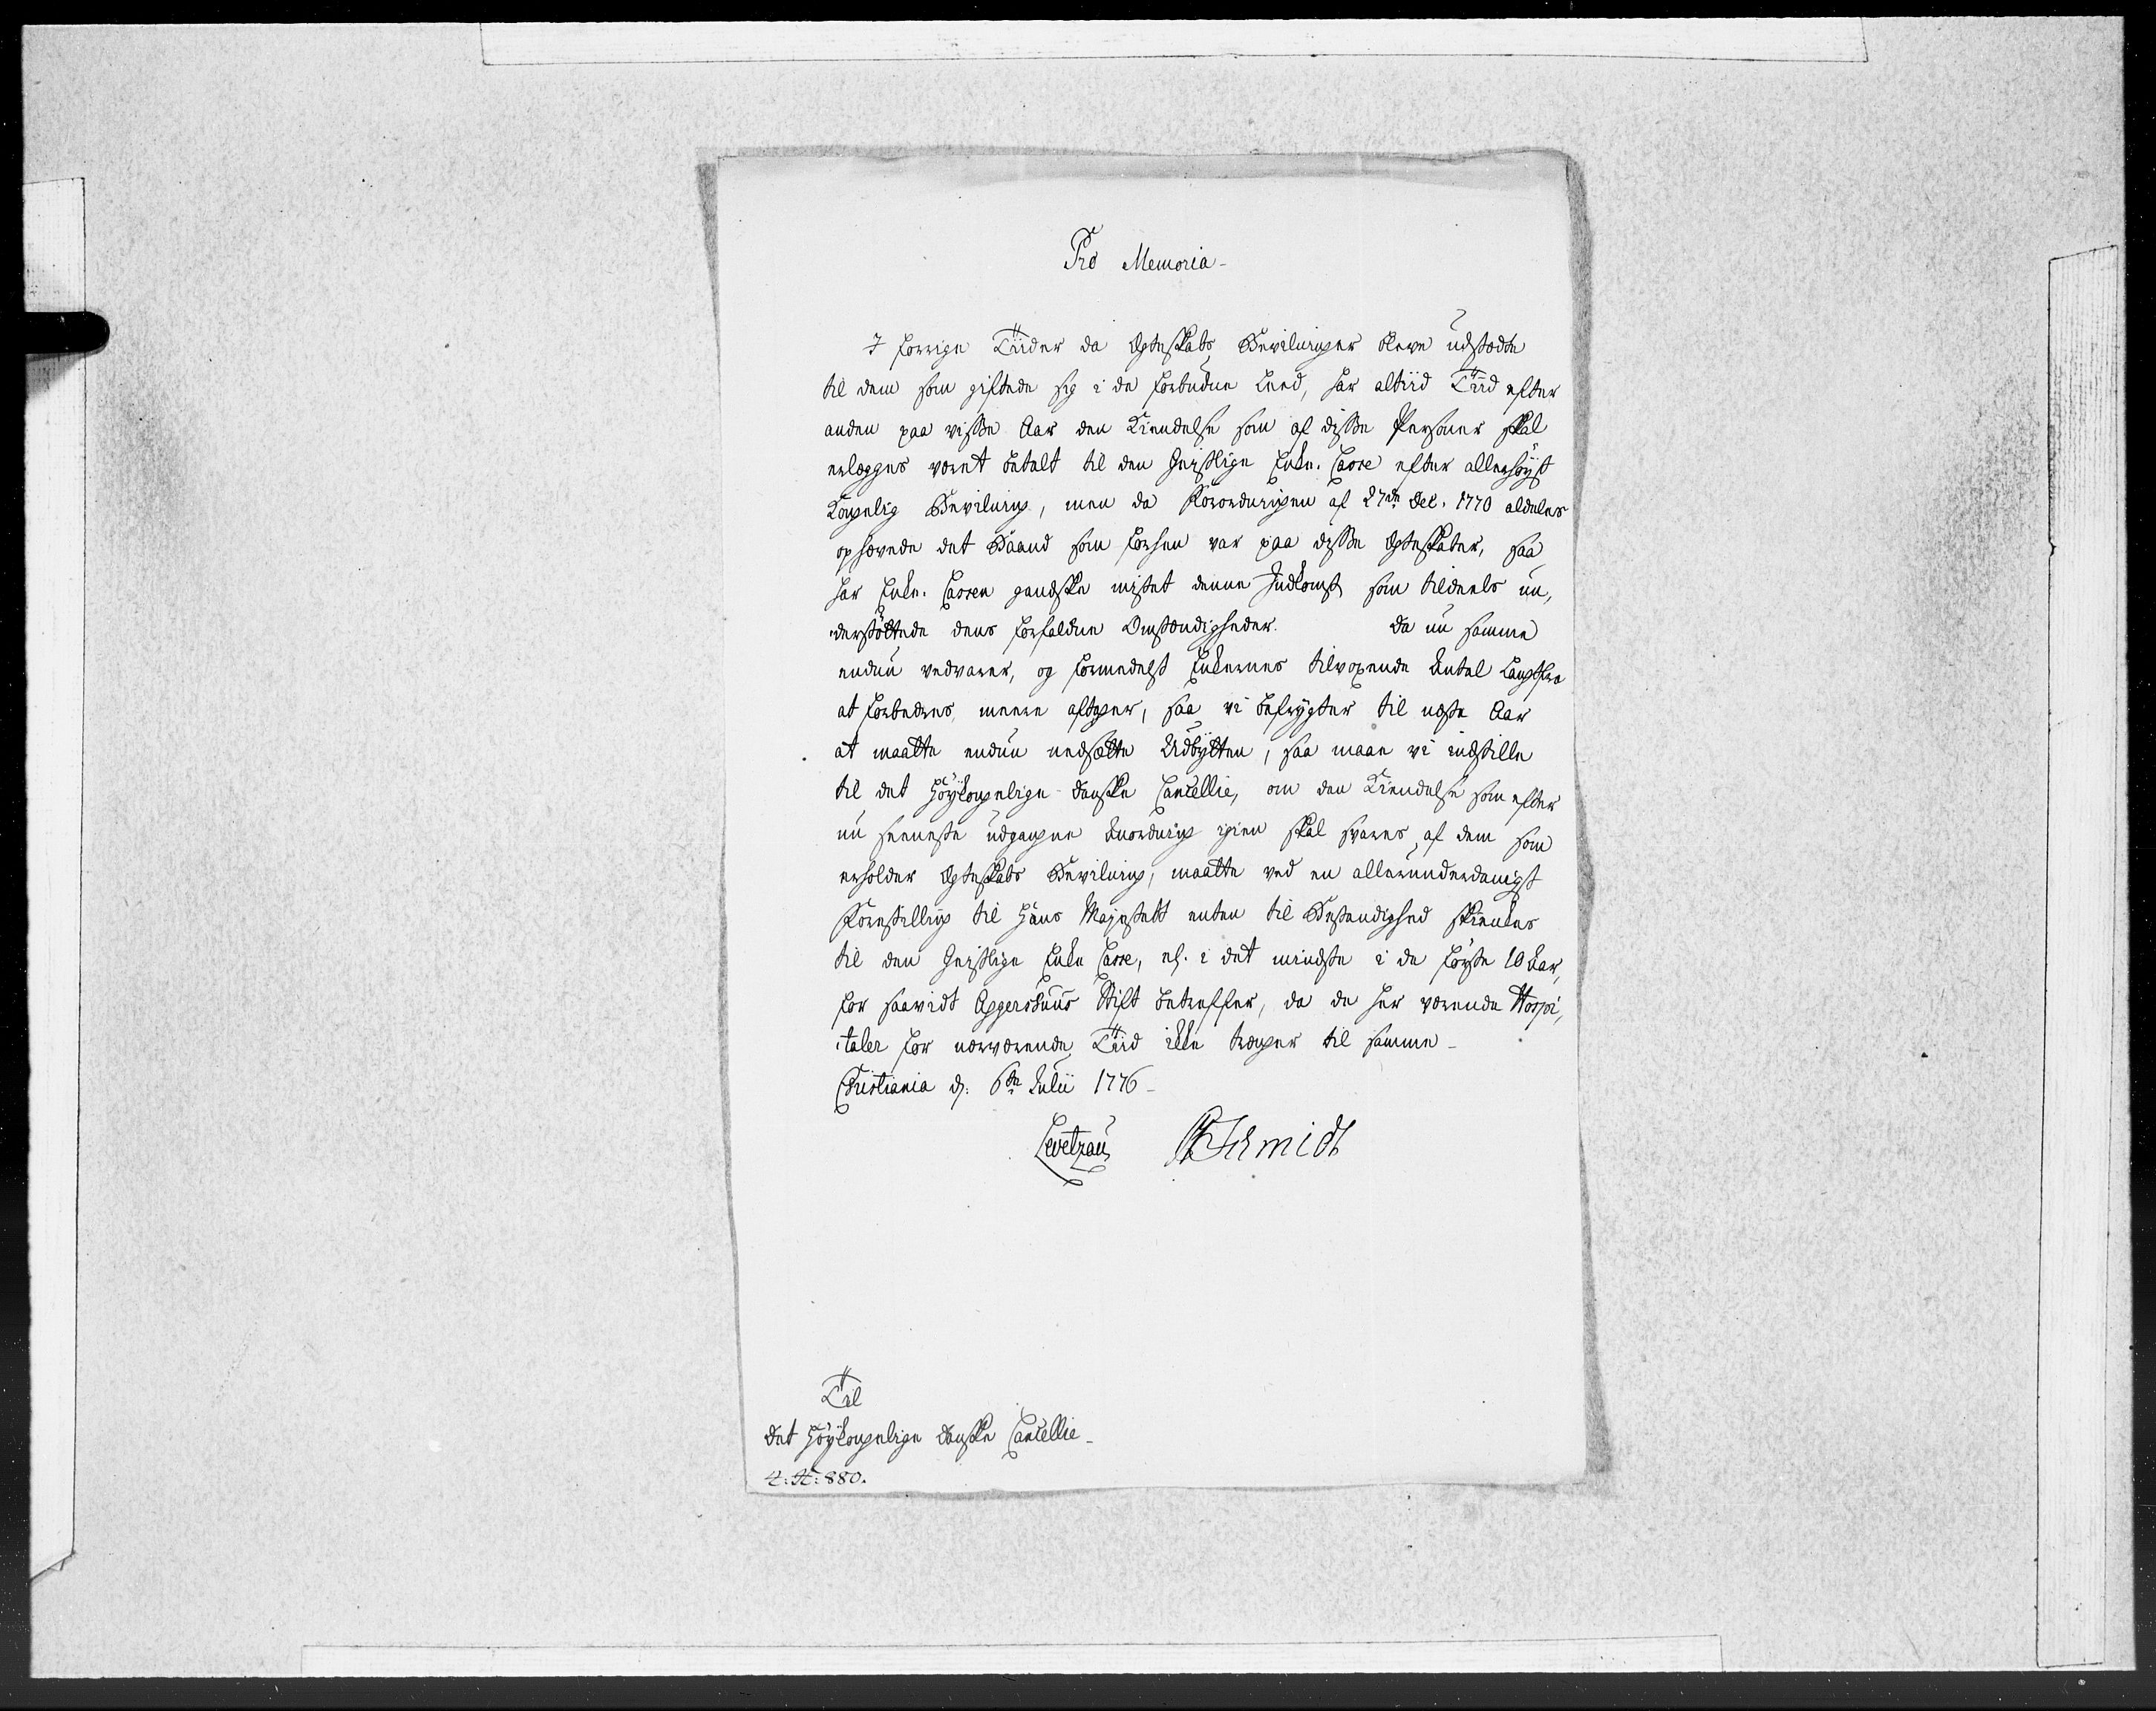 Pro Memoria-
I forrige Tiider da Ægteskabs Bevilninger bleve udstædte
til dem som giftede sig i de forbudne Leed, har altiid Tiid efter
anden paa visse Aar den Kiendelse som af disse Personer skal
erlægges været betalt til den Geistlige Enke. Casse efter allerhøyst
Kongelig Bevilning, men da Forordningen af 27de Dec. 1770 aldeles
ophævede det Baand som forhen var paa disse Ægteskaber, saa
har Enke. Cassen gandske mistet denne Indkomst som tildeels un,
derstöttede dens forfaldne Omstændigheder. Da nu samme
endnu vedvarer, og formedelst Enkernes tilvoxende Antal Langt fra
at forbedres, meere aftager, saa vi befrygter til næste Aar
at maatte endnu nedsætte Udbyttet, saa maae vi indstille
til det Höykongelige danske Cancellie, om den Kiendelse som efter
nu seeneste udgangne Anordning igien skal svares af dem som
erholder Ægteskabs Bevilning, maatte ved en allerunderdanigst
Forestilling til Hans Majestætt enten til Bestandighed skienkes
til den Geistlige Enke Casse, el. i det mindste i de förste 10 Aar,
for saavidt Aggershuus Stift betreffer, da de her værende Hospi,
taler for nærværende Tiid ikke trænger til samme-
Christiania d: 6te Julii 1776-
Levetzau Schmidt
Til
det Höykongelige danske Cancellie-
880.